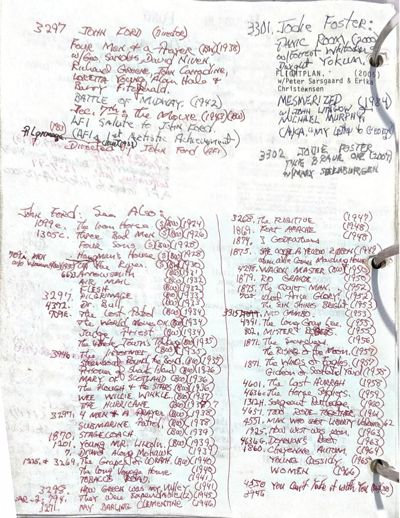 3297 JOHN FORD (Director)
Four Men & a Prayer (BW)(1938)
w/Geo. Sanders, David Niven,
Richard Greene, John Carradine,
Loretta Young, Alan Hale &
Barry Fitzgerald.
BATTLE OF MIDWAY (1942)
Dec. 7th: The Movie (1943)(BW)
AFI Salute to John Ford
(AFI's 1st Achievement)
Directed by John Ford (AFI)
3301. Jodie Foster:
PANIC ROOM (2002)
w/Forest Whitaker &
Dwight Yokum.
FLIGHTPLAN. (2005)
w/Peter Sarsgaard & Erika
Christensen
MESMERIZED (1984)
w/JOHN LITHGOW &
MICHAEL MURPHY
(A.K.A. MY LETTER TO GEORGE)
3302 JODIE FOSTER
THE BRAVE ONE (2007)
w/MARY STEENBURGEN
JOHN FORD: See Also:
1099. The Iron Horse (S)(BW)(1924)
1305c. Three Bad Men (S)(BW)(1926)
Four Sons (S)(BW)(1928)
Hangman's House (S)(BW)(1928)
Up the River. (BW)(1930)
ARROWSMITH (BW)(1931)
AIR MAIL (BW)(1932)
FLESH (BW)(1932)
3297 PILGRIMAGE (BW)(1933)
4372. Dr. Bull (BW)(1933)
The Lost Patrol (BW)(1934)
The World Moves On (BW)(1934)
Judge Priest (BW)(1934)
The Whole Town's Talking (BW)(1935)
The Informer (BW)(1935)
Steamboat Round the Bend (BW)(1935)
Prisoner of Shark Island (BW)(1936)
MARY OF SCOTLAND (BW)(1936)
The Plough & the Stars (BW)(1936)
WEE WILLIE WINKIE (BW)(1937)
THE HURRICANE (BW)(1937)
3297 4 MEN & A PRAYER (BW)(1938)
SUBMARINE PATROL (BW)(1938)
1870. STAGECOACH (BW)(1939)
7201 YOUNG MR. LINCOLN (BW)(1939)
7. DRUMS Along Mohawk (1939)
3269. The Grapes of Wrath. (BW)(1940)
The Long Voyage Home (1940)
TOBACCO ROAD. (1941)
3298 HOW GREEN WAS MY Valley (1941)
They Were Expendable (1945)
3271. MY DARLING CLEMENTINE (1946)
3268. The FUGITIVE (1947)
1869. FORT APACHE (1948)
1879. 3 GODFATHERS (1948)
1875. SHE WORE A YELLOW RIBBON (1949)
4298. WAGON MASTER (BW)(1950)
1879. RIO GRANDE (1950)
1875. The QUIET MAN. (1952)
What Price Glory (1952)
The SUN Shines Bright (1953)
MOGAMBO (1953)
4391. The Long Gray Line (1955)
182. MISTER ROBERTS (1955)
1871. The Searchers (1956)
The Rising of the Moon. (1957)
1891. The Wings of Eagles (1957)
Gideon of Scotland Yard (1958)
4601. The Last HURRAH (1958)
4636. The Horse Soldiers (1959)
1324. Sergeant Rutledge (1960)
4657. TWO RODE TOGETHER (1961)
4551. MAN WHO SHOT LIBERTY VALANCE '62
1925. HOW WEST WAS WON (1963)
4346. DONOVAN'S REEF (1963)
4860. CHEYENNE AUTUMN (1964)
YOUNG CASSIDY (1965)
7 WOMEN (1966)
4558 You Can't Take it with You (BW)